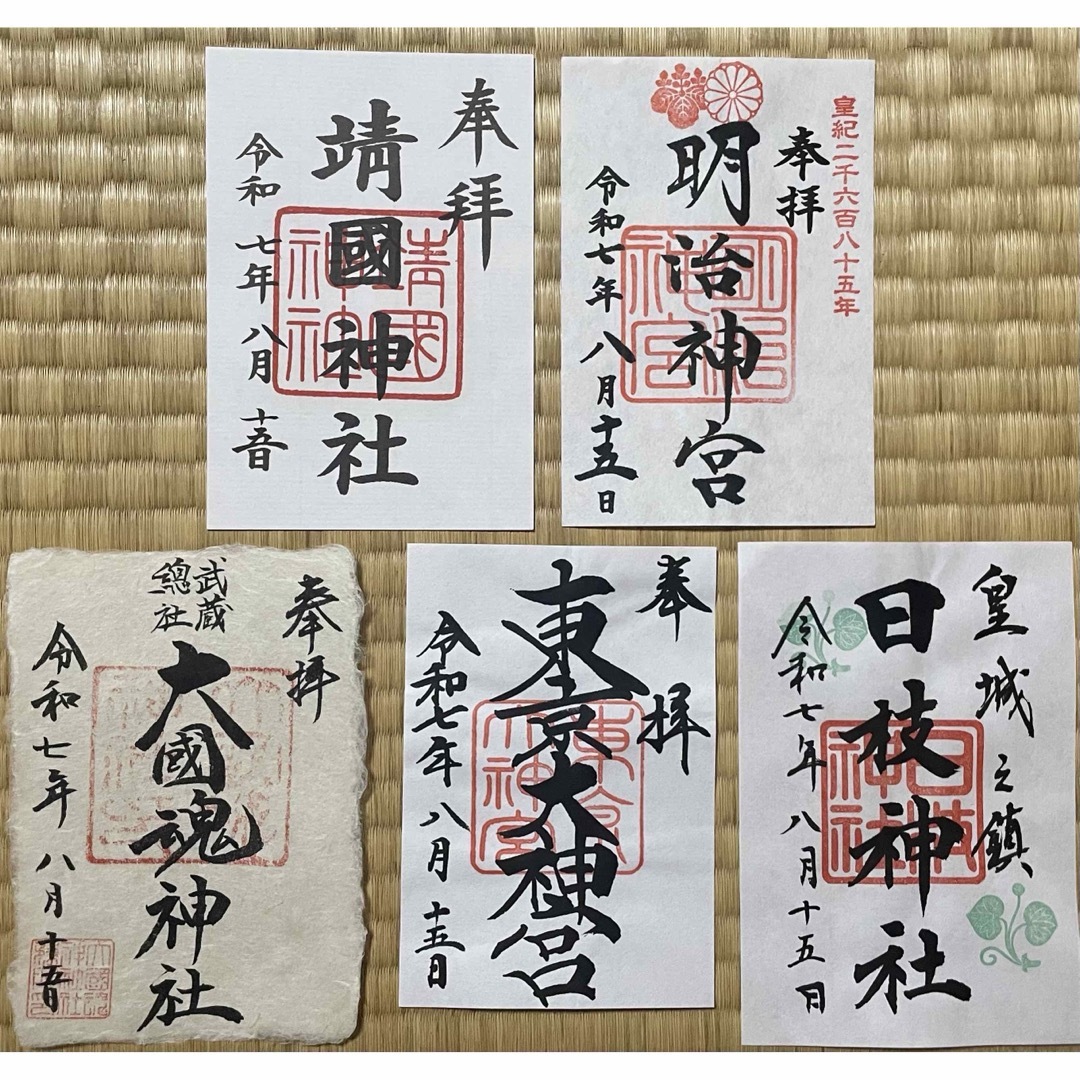 奉拝
靖國神社
靖國神社
令和七年八月十五日
皇紀二千六百八十五年
奉拝
明治神宮
明治神宮
令和七年八月十五日
奉拝
武蔵
總社
大國魂神社
令和七年八月十五日
奉拝
東京大神宮
東京大神宮
令和七年八月十五日
皇城之鎮
日枝神社
日枝神社
令和七年八月十五日